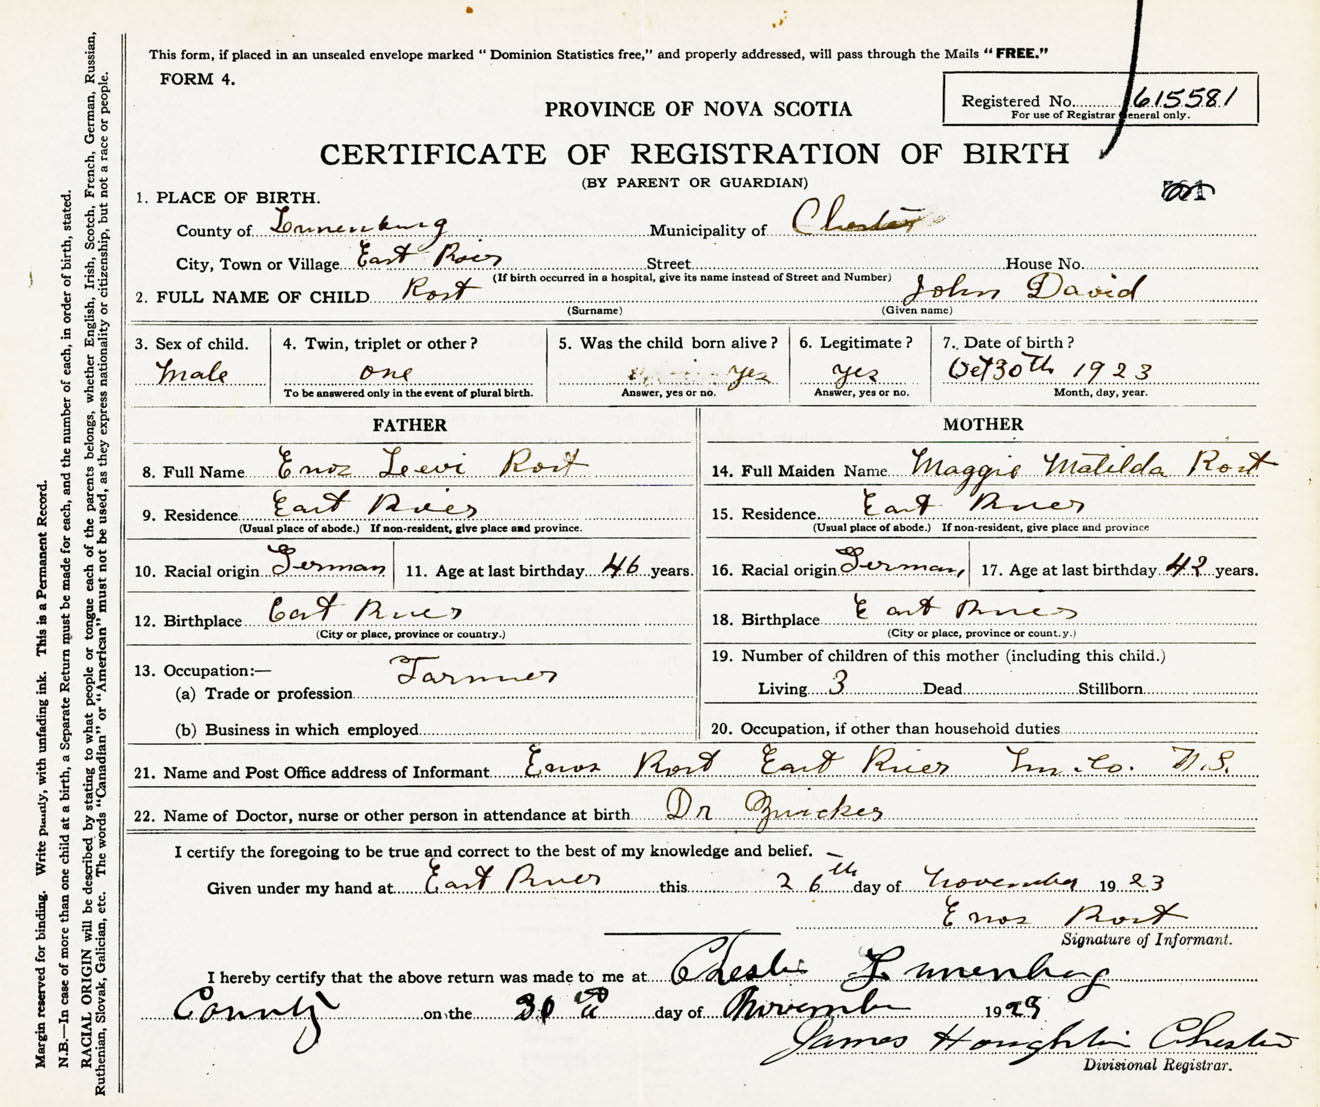 This form, if placed in an unsealed envelope marked "Dominion Statistics free," and properly addressed, will pass through the Mails "FREE."
FORM 4.
Registered No. 615581
For use of Registrar General only.
PROVINCE OF NOVA SCOTIA
CERTIFICATE OF REGISTRATION OF BIRTH
(BY PARENT OR GUARDIAN)
1. PLACE OF BIRTH.
County of Lunenburg Municipality of Chester
City, Town or Village East River Street House No.
(If birth occurred in a hospital, give its name instead of Street and Number)
2. FULL NAME OF CHILD Rost John David
(Surname) (Given name)
3. Sex of child. 4. Twin, triplet or other? 5. Was the child born alive? 6. Legitimate? 7. Date of birth?
Male one yes yes Oct 30th 1923
To be answered only in the event of plural birth. Answer, yes or no. Answer, yes or no. Month, day, year.
FATHER MOTHER
8. Full Name Enos Levi Rost 14. Full Maiden Name Maggie Matilda Rost
9. Residence East River 15. Residence East River
(Usual place of abode.) If non-resident, give place and province. (Usual place of abode.) If non-resident, give place and province
10. Racial origin German 11. Age at last birthday 46 years. 16. Racial origin German, 17. Age at last birthday 42 years.
12. Birthplace East River 18. Birthplace East River
(City or place, province or country.) (City or place, province or count.y.)
13. Occupation:— Farmer 19. Number of children of this mother (including this child.)
(a) Trade or profession Living 3 Dead Stillborn
(b) Business in which employed 20. Occupation, if other than household duties
21. Name and Post Office address of Informant Enos Rost East River Lun. Co. N.S.
22. Name of Doctor, nurse or other person in attendance at birth Dr Zwicker
I certify the foregoing to be true and correct to the best of my knowledge and belief.
Given under my hand at East River this 26th day of November 1923
Enos Rost
Signature of Informant.
I hereby certify that the above return was made to me at Chester Lunenburg
County on the 30th day of November 1923
James Houghton Chester
Divisional Registrar.
Margin reserved for binding. Write plainly, with unfading ink. This is a Permanent Record.
N.B.—In case of more than one child at a birth, a Separate Return must be made for each, and the number of each, in order of birth, stated.
RACIAL ORIGIN will be described by stating to what people or tongue each of the parents belongs, whether English, Irish, Scotch, French, German, Russian,
Ruthenian, Slovak, Galician, etc. The words "Canadian" or "American" must not be used, as they express nationality or citizenship, but not a race or people.